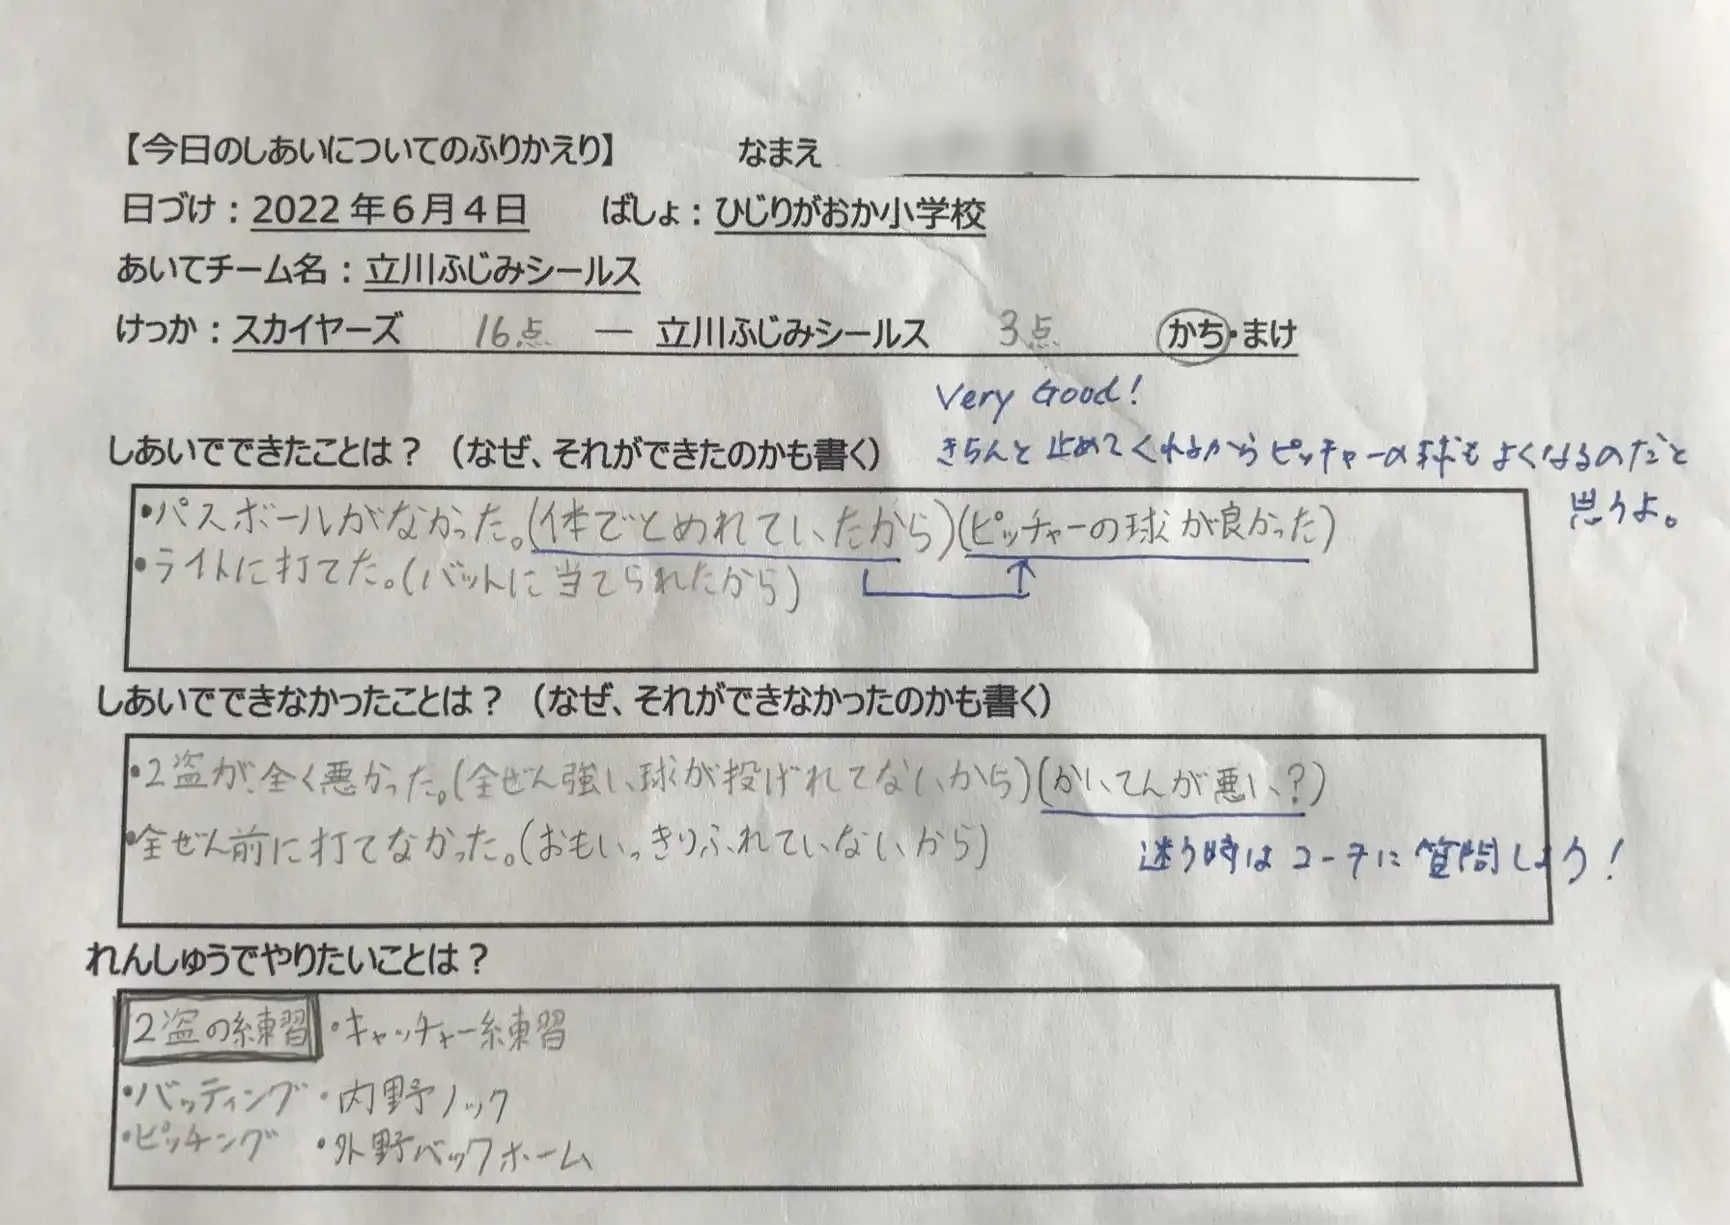 【今日のしあいについてのふりかえり】 なまえ
日づけ：2022年6月4日 ばしょ：ひじりがおか小学校
あいてチーム名：立川ふじみシールス
けっか：スカイヤーズ 16点 ― 立川ふじみシールス 3点 かち・まけ
Very Good!
しあいでできたことは？（なぜ、それができたのかも書く） きちんと止めてくれるからピッチャーの球もよくなるのだと
思うよ。
・パスボールがなかった。(体でとめれていたから)(ピッチャーの球が良かった)
・ライトに打てた。(バットに当てられたから)
しあいでできなかったことは？（なぜ、それができなかったのかも書く）
・2盗が、全く悪かった。(全ぜん強い球が投げれてないから)(かいてんが悪い?)
・全ぜん前に打てなかった。(おもいっきりふれていないから)
迷う時はコーチに質問しよう!
れんしゅうでやりたいことは？
2盗の練習 ・キャッチャー練習
・バッティング ・内野ノック
・ピッチング ・外野バックホーム